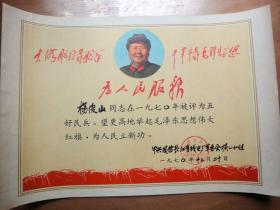 大海航行靠舵手
干革命靠毛泽东思想
为人民服务
杨俊山同志在一九七〇年被评为五
好民兵。望更高地举起毛泽东思想伟大
红旗，为人民立新功。
一九七〇年十二月二十日